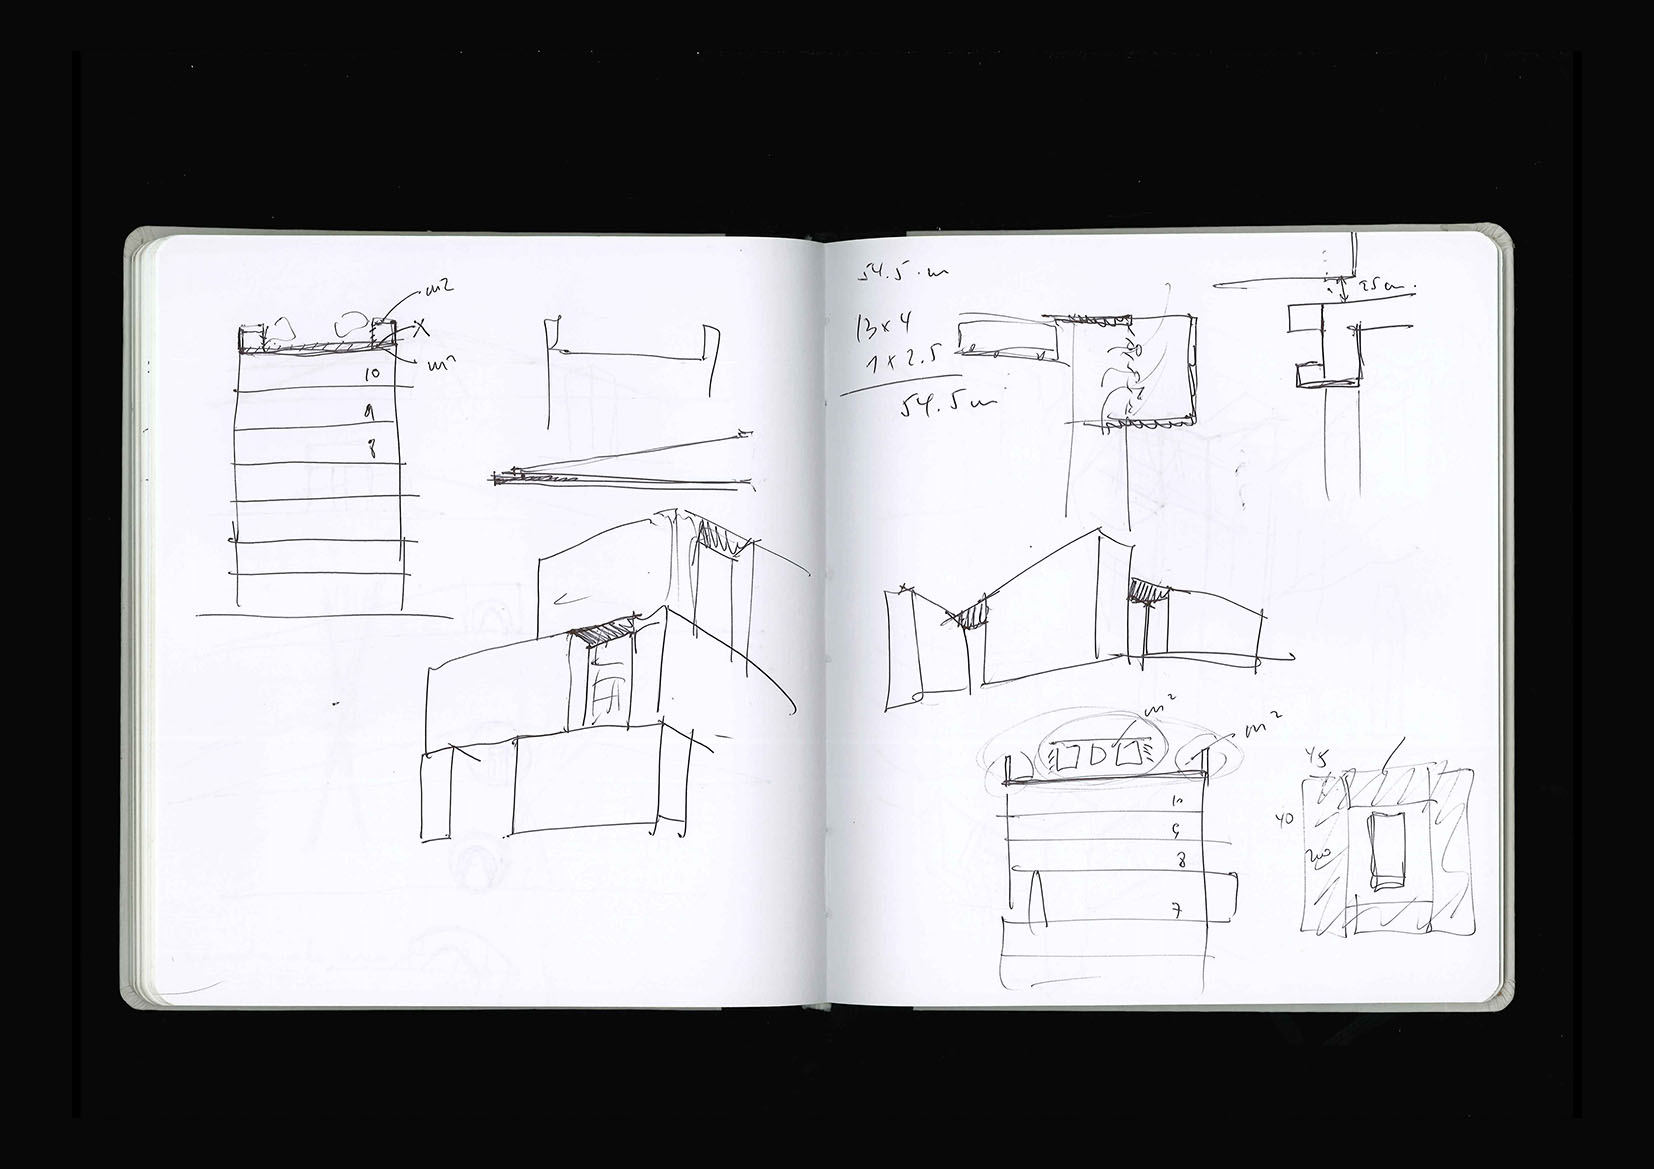 m2
X
m2
10
9
8
54.5 m
13 x 4
1 x 2.5
54.5 m
25 cm.
m²
m²
10
9
8
7
45
40
200